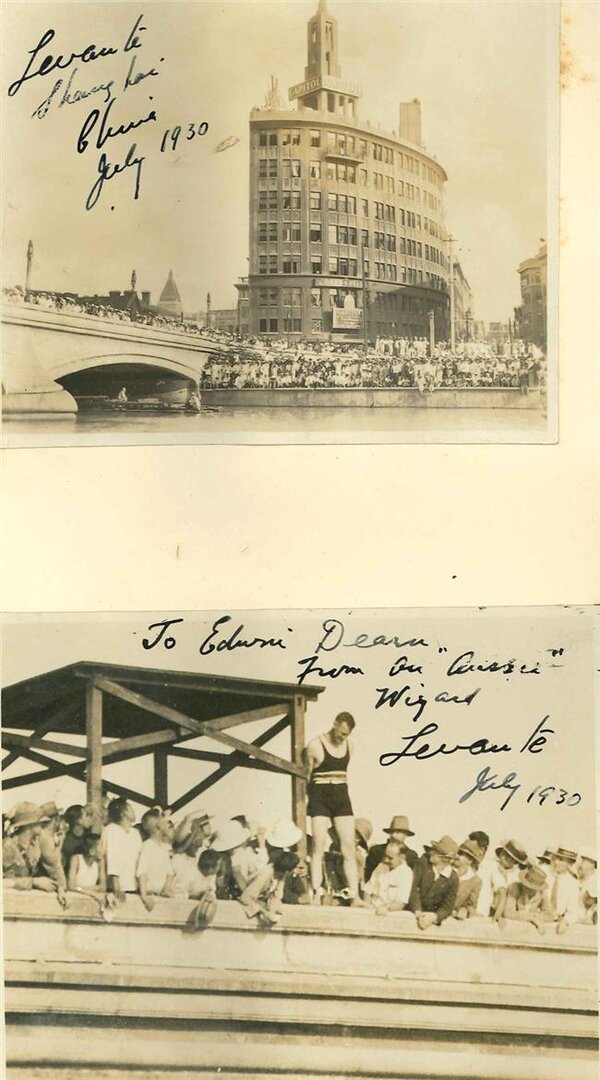 Levanté
Shanghai
China
July 1930
CAPITOL
To Edwin Dearn
From An "Aussie"
Wizard
Levanté
July 1930